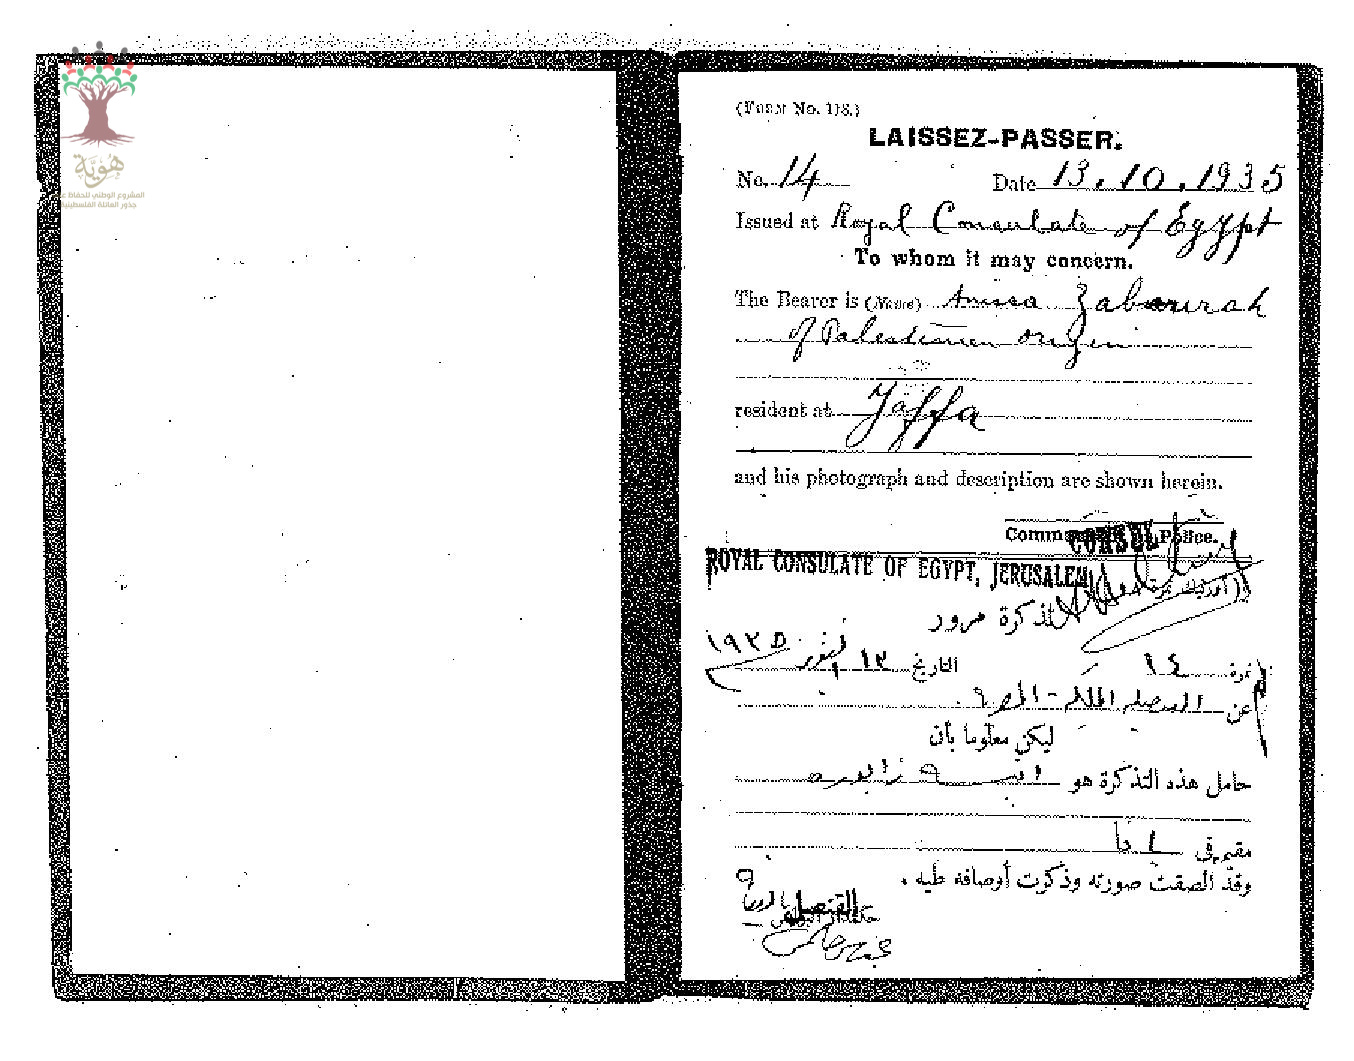 هُوِيَّة
المشروع الوطني للحفاظ على
جذور العائلة الفلسطينية
(Form No. 118.)
LAISSEZ-PASSER.
No. 14 Date 13.10.1935
Issued at Royal Consulate of Egypt
To whom it may concern.
The Bearer is (Name) Anisa
of Palestinian origin
resident at Jaffa
and his photograph and description are shown herein.
CONSUL Police.
ROYAL CONSULATE OF EGYPT, JERUSALEM
تذكرة مرور
نمرة ١٤ التاريخ ١٣ ١٩٣٥
عن
ليكن معلوما بأن
حامل هذه التذكرة هو
مقيم في يافا
وقد الصقت صورته وذكرت أوصافه طيه .
القنصل